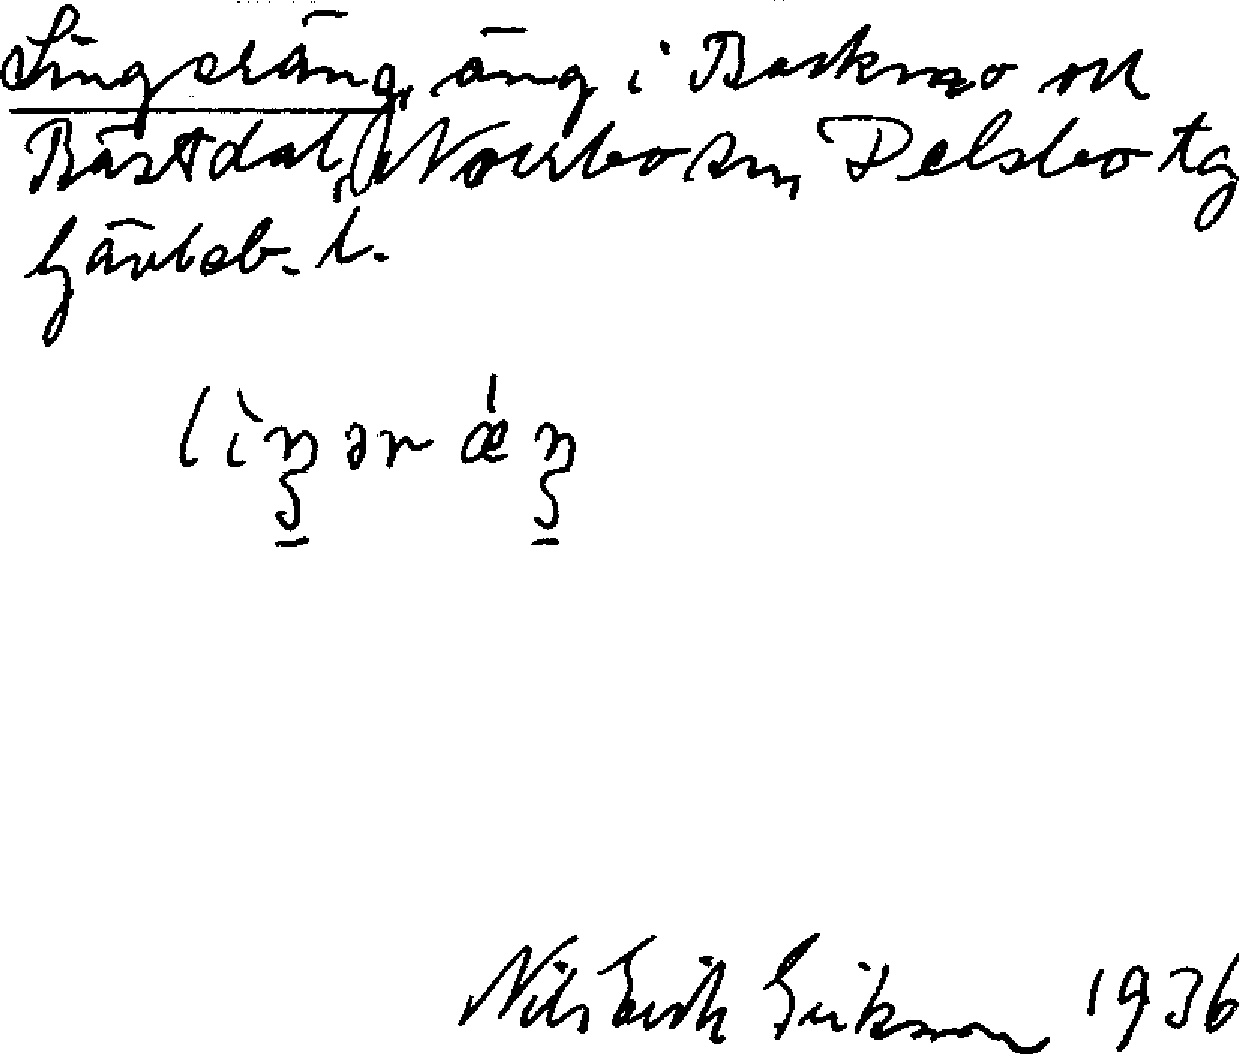 Lingeräng, äng i Baskmo och
Bästdal, Norrbo sn, Delsbo tg
Gävleb. l.
lìŋər ǽŋ
Nils Erik Erikson 1936